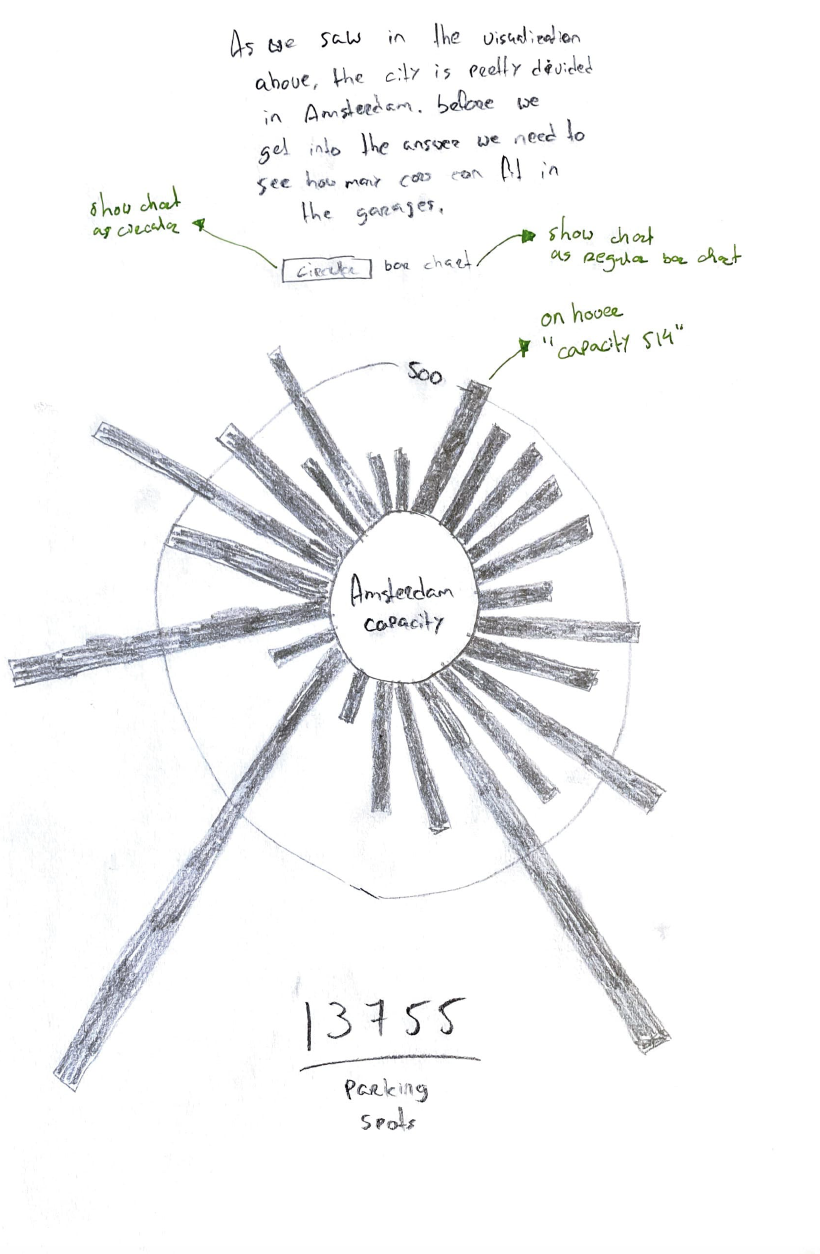 As we saw in the visualization
above, the city is pretty divided
in Amsterdam. before we
get into the answer we need to
see how many cars can fit in
the garages.
show chart
as circular
show chart
as regular bar chart
circular bar chart
on hover
"capacity 514"
500
Amsterdam
capacity
13755
parking
spots